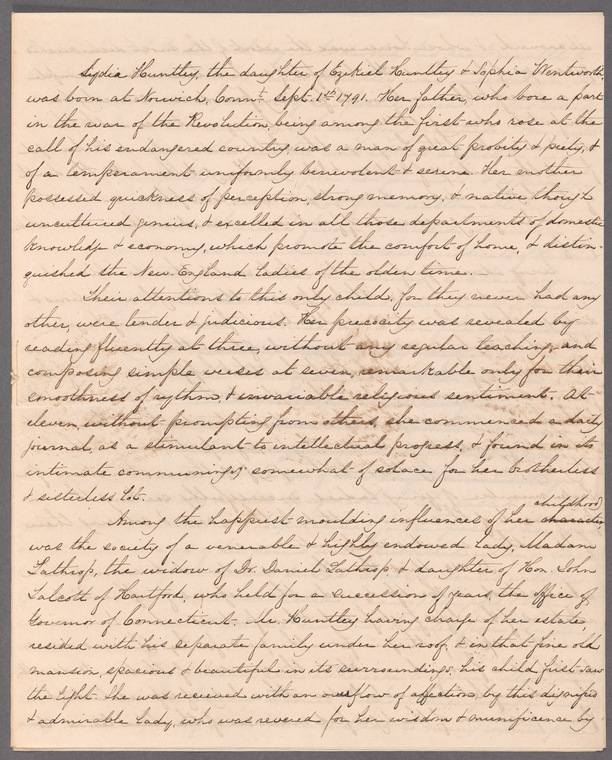 Lydia Huntley, the daughter of Ezekiel Huntley & Sophia Wentworth,
was born at Norwich, Connt. Sept. 1st 1791. Her father, who bore a part
in the war of the Revolution, being among the first who rose at the
call of his endangered country, was a man of great probity & piety, &
of a temperament uniformly benevolent & serene. Her mother
possessed quickness of perception, strong memory, & native though
uncultured genius, & excelled in all those departments of domestic
knowledge & economy, which promote the comfort of home, & distin-
guished the New-England ladies of the olden time.
Their attentions to this only child, for they never had any
other, were tender & judicious. Her precosity was revealed by
reading fluently at three, without any regular teaching, and
composing simple verses at seven, remarkable only for their
smoothness of rythm, & invariable religious sentiment. At
eleven, without prompting from others, she commenced a daily
journal, as a stimulant to intellectual progress, & found in its
intimate communings somewhat of solace for her brotherless
& sisterless lot.
childhood
Among the happiest moulding influences of her character,
was the society of a venerable & highly endowed lady, Madam
Lathrop, the widow of Dr. Daniel Lathrop, & daughter of Hon. John
Talcott of Hartford, who held for a succession of years, the office of
Governor of Connecticut. Mr. Huntley having charge of her estate,
resided with his separate family under her roof, & in that fine old
mansion, spacious & beautiful in its surroundings, his child first saw
the light. She was received with an overflow of affection, by this dignified
& admirable lady, who was revered for her wisdom & munificence by